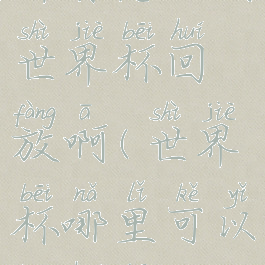 shì jiè bēi huí
世界杯回
fàng ā shì jiè
放啊(世界
bēi nǎ lǐ kě yǐ
杯哪里可以